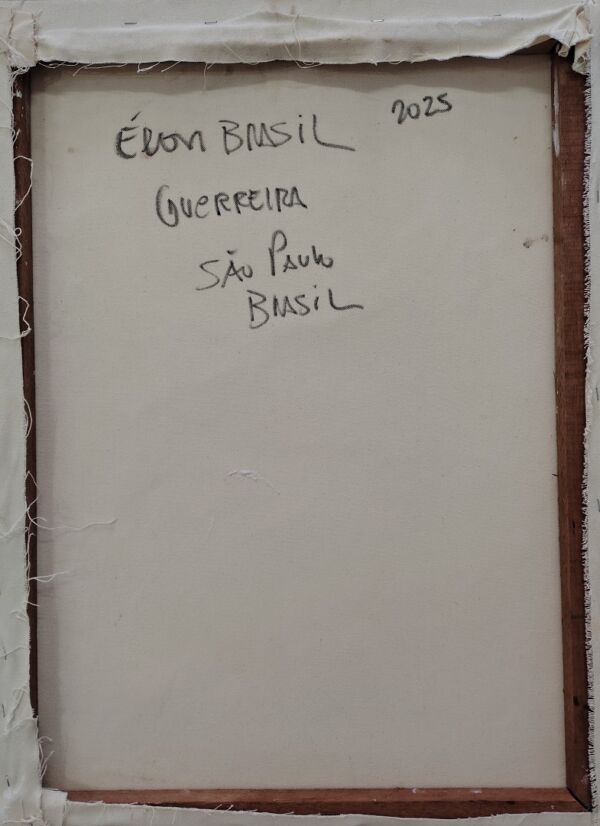 Éron Brasil 2025
Guerreira
São Paulo
Brasil